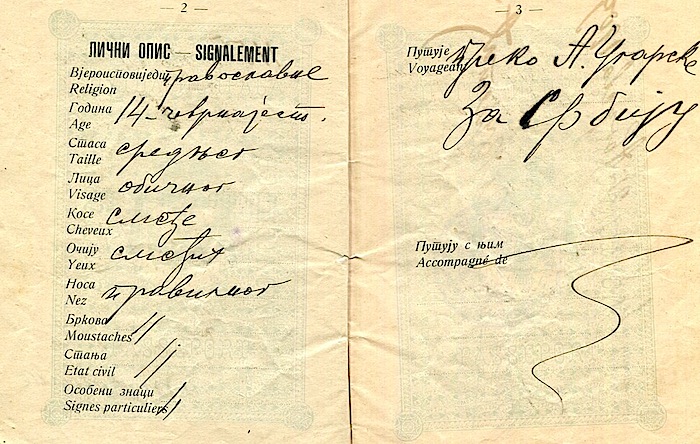 — 2 —
ЛИЧНИ ОПИС — SIGNALEMENT
Вјероисповиједи православне
Religion
Година 14 - четрнајест.
Age
Стаса средњег
Taille
Лица обичног
Visage
Косе смеђе
Cheveux
Очију смеђих
Yeux
Носа правилног
Nez
Бркова //
Moustaches
Стања //
Etat civil
Особени знаци //
Signes particuliers
— 3 —
Путује преко А. Угарске
Voyageant
За Србију
Путују с њим
Accompagné de